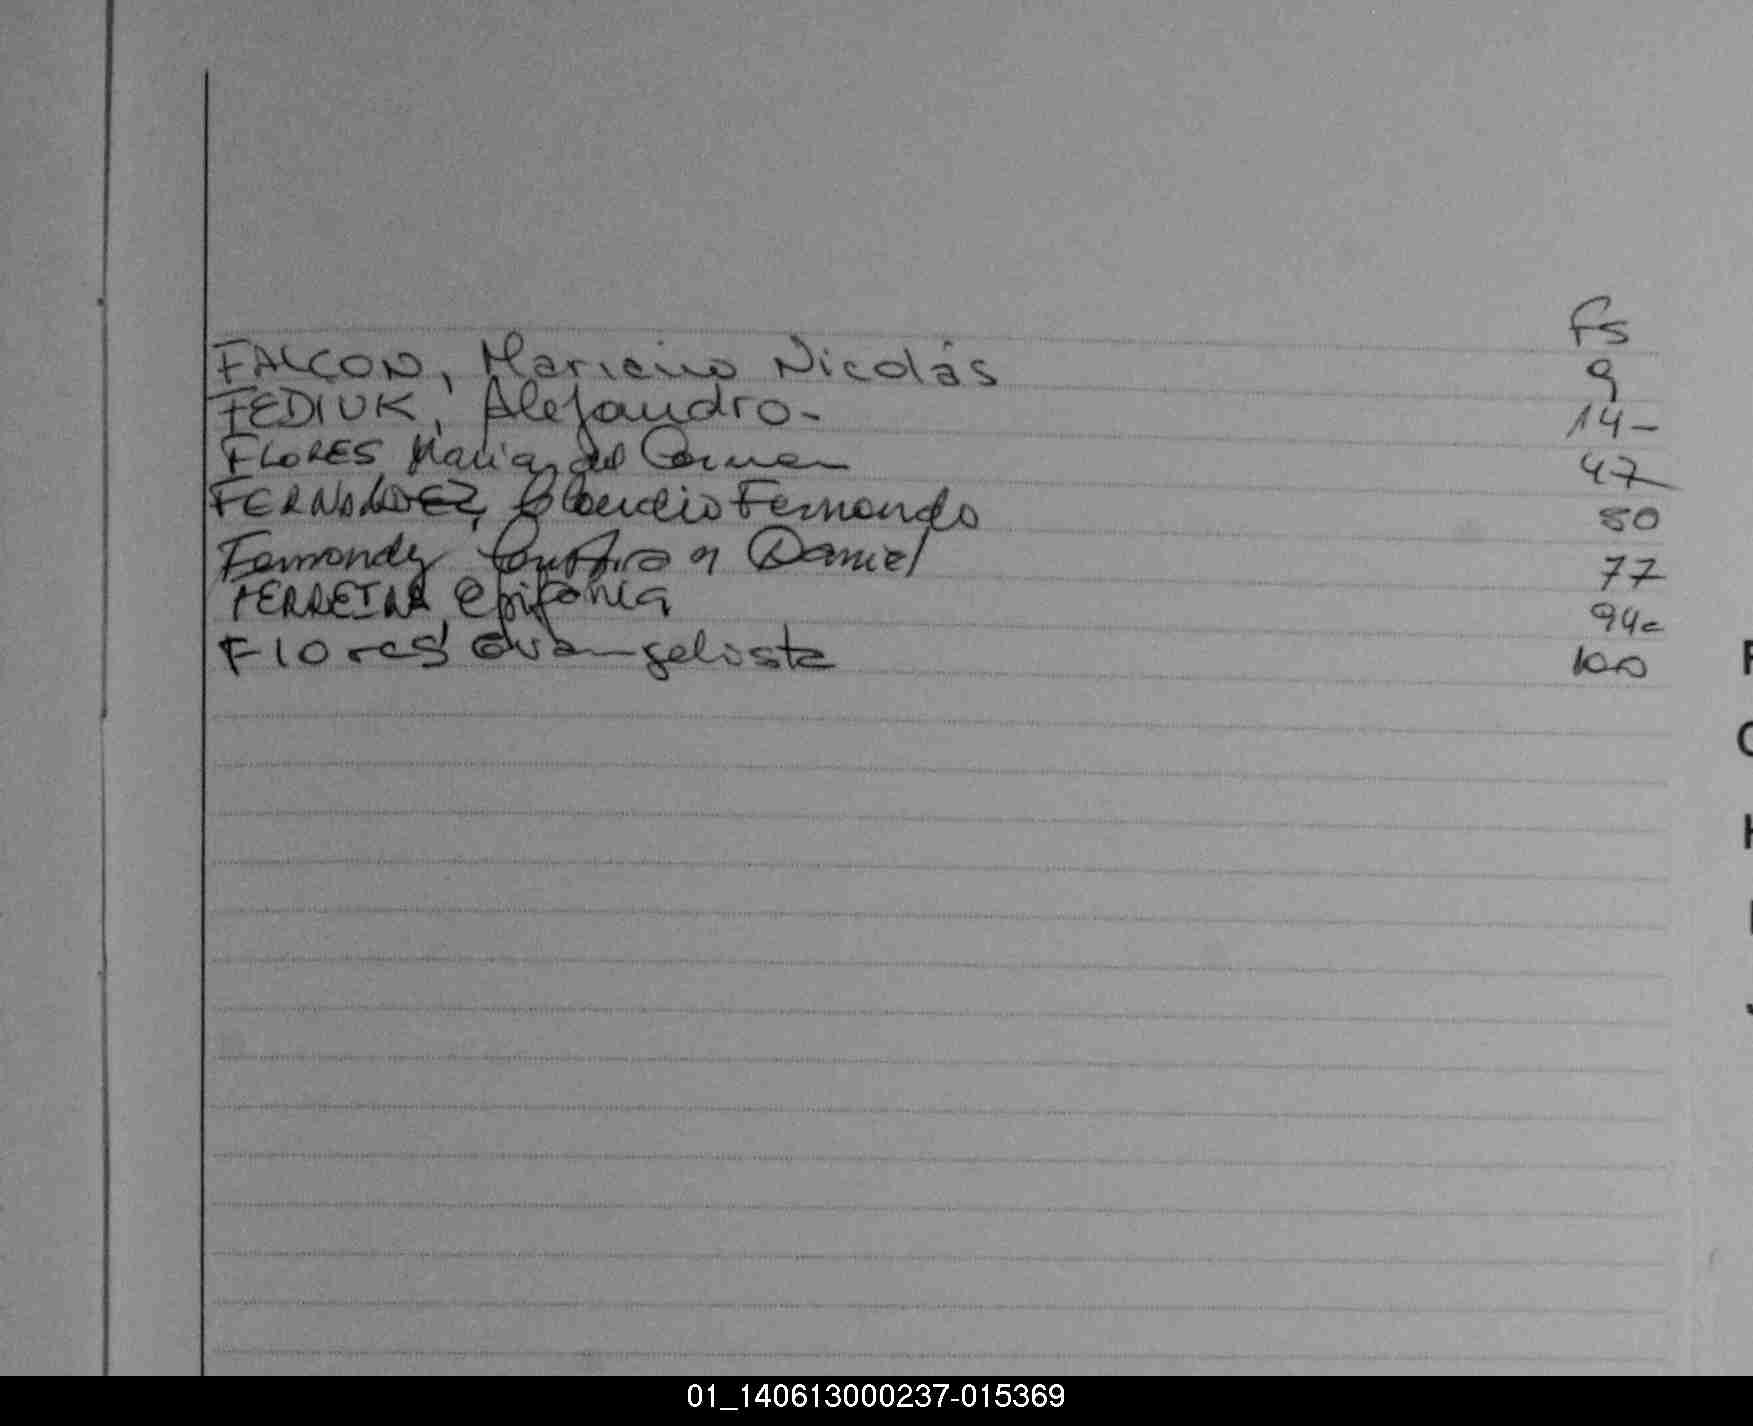 Fs
FALCON, Mariano Nicolás 9
FEDIUK, Alejandro- 14-
FLORES, María del Carmen 47
FERNANDEZ, Claudio Fernando 50
Fernandez Daniel 77
FERREIRA, Epifania 94
Flores Evangelista 100
01_140613000237-015369